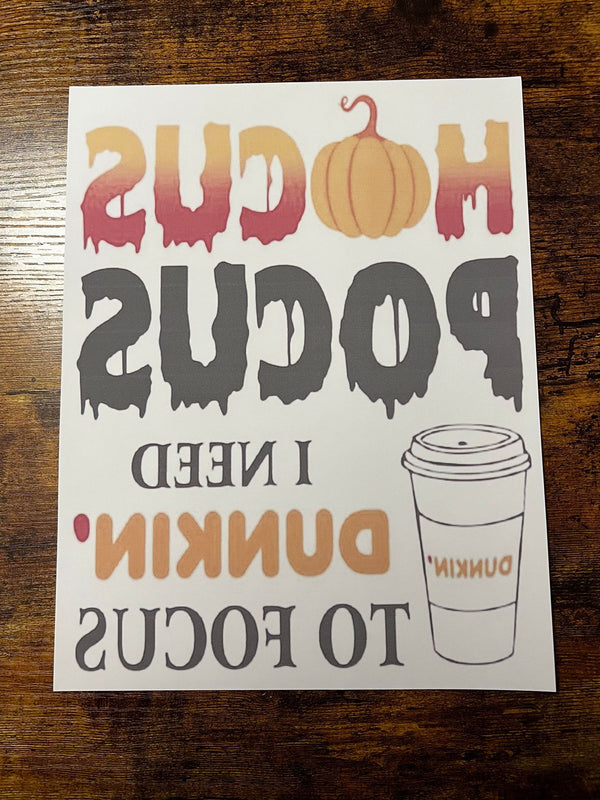 HOCUS
POCUS
I NEED
DUNKIN'
TO FOCUS
DUNKIN'